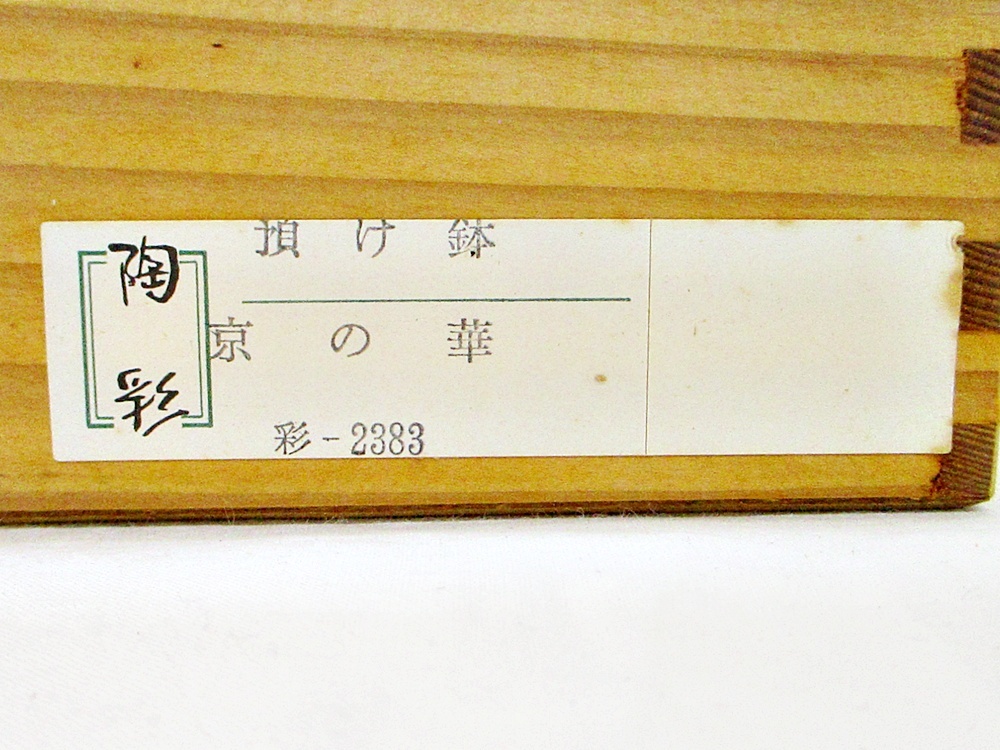 陶彩
預け鉢
京の華
彩-2383